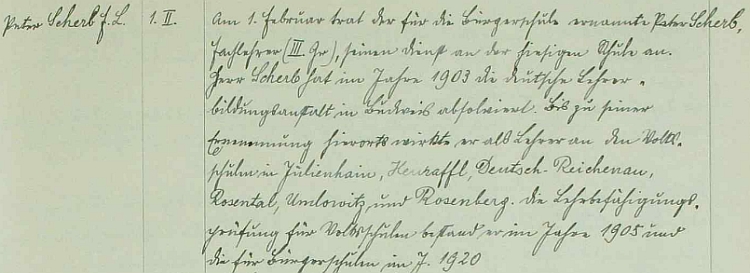 Peter Scherb f. L. 1. II. Am 1. Februar trat der für die Bürgerschule ernannte Peter Scherb,
Fachlehrer (III. Gr), seinen Dienst an der hiesigen Schule an.
Herr Scherb hat im Jahre 1903 die deutsche Lehrer-
bildungsanstalt in Budweis absolviert. Bis zu seiner
Ernennung hierorts wirkte er als Lehrer an den Volks-
schulen in Julienhain, Heuraffl, Deutsch-Reichenau,
Rosental, Umlowitz, und Rosenberg. Die Lehrbefähigungs-
prüfung für Volksschulen bestand er im Jahre 1905 und
die für Bürgerschulen im J. 1920